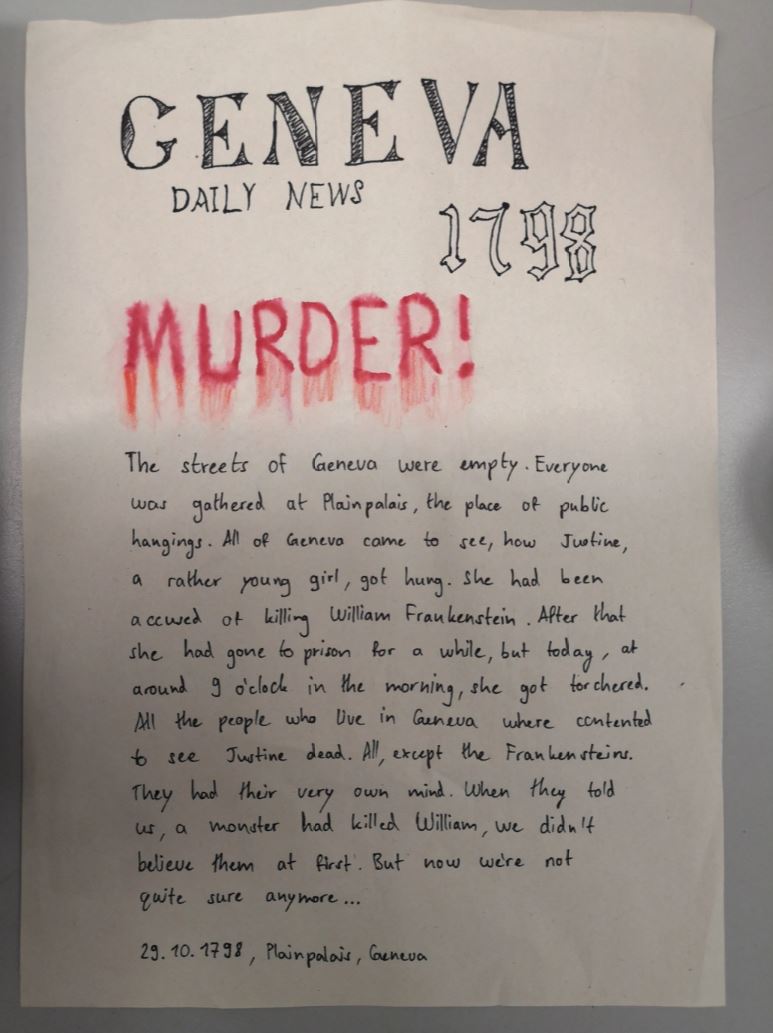 GENEVA
DAILY NEWS
1798
MURDER!
The streets of Geneva were empty. Everyone
was gathered at Plainpalais, the place of public
hangings. All of Geneva came to see, how Justine,
a rather young girl, got hung. She had been
accused of killing William Frankenstein. After that
she had gone to prison for a while, but today, at
around 9 o'clock in the morning, she got torchered.
All the people who live in Geneva where contented
to see Justine dead. All, except the Frankensteins.
They had their very own mind. When they told
us, a monster had killed William, we didn't
believe them at first. But now we're not
quite sure anymore...
29.10.1798, Plainpalais, Geneva